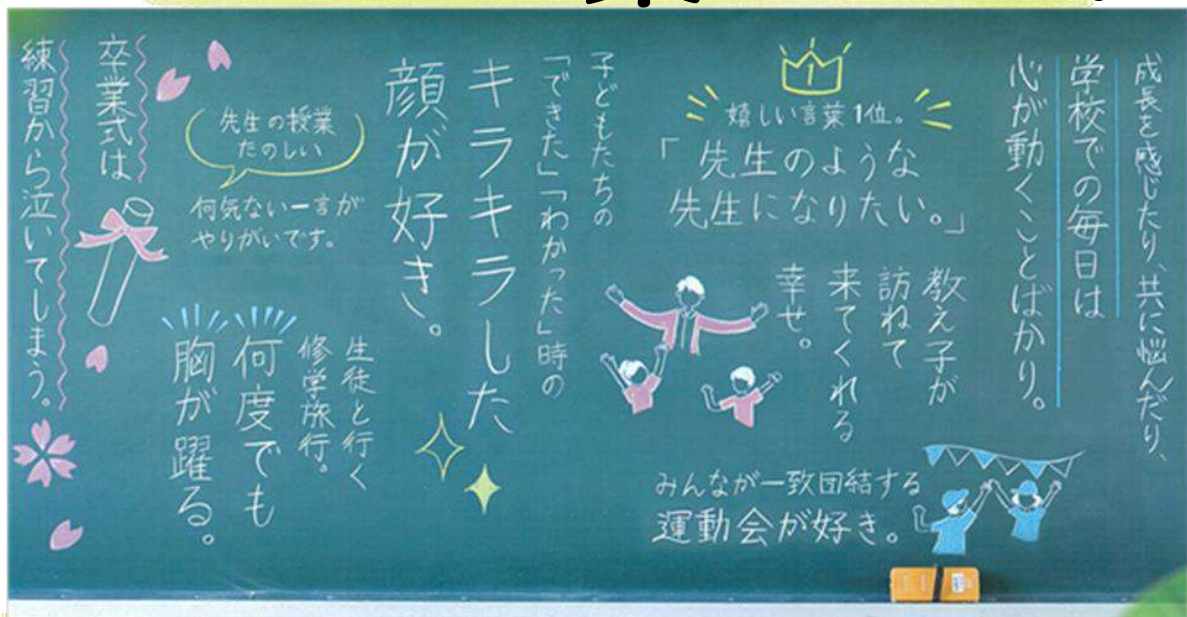 成長を感じたり、共に悩んだり、
学校での毎日は
心が動くことばかり。
1
嬉しい言葉1位。
「先生のような
先生になりたい。」
教え子が
訪ねて
来てくれる
幸せ。
みんなが一致団結する
運動会が好き。
子どもたちの
「できた」「わかった」時の
キラキラした
顔が好き。
先生の授業
たのしい
何気ない一言が
やりがいです。
生徒と行く
修学旅行。
何度でも
胸が躍る。
卒業式は
練習から泣いてしまう。